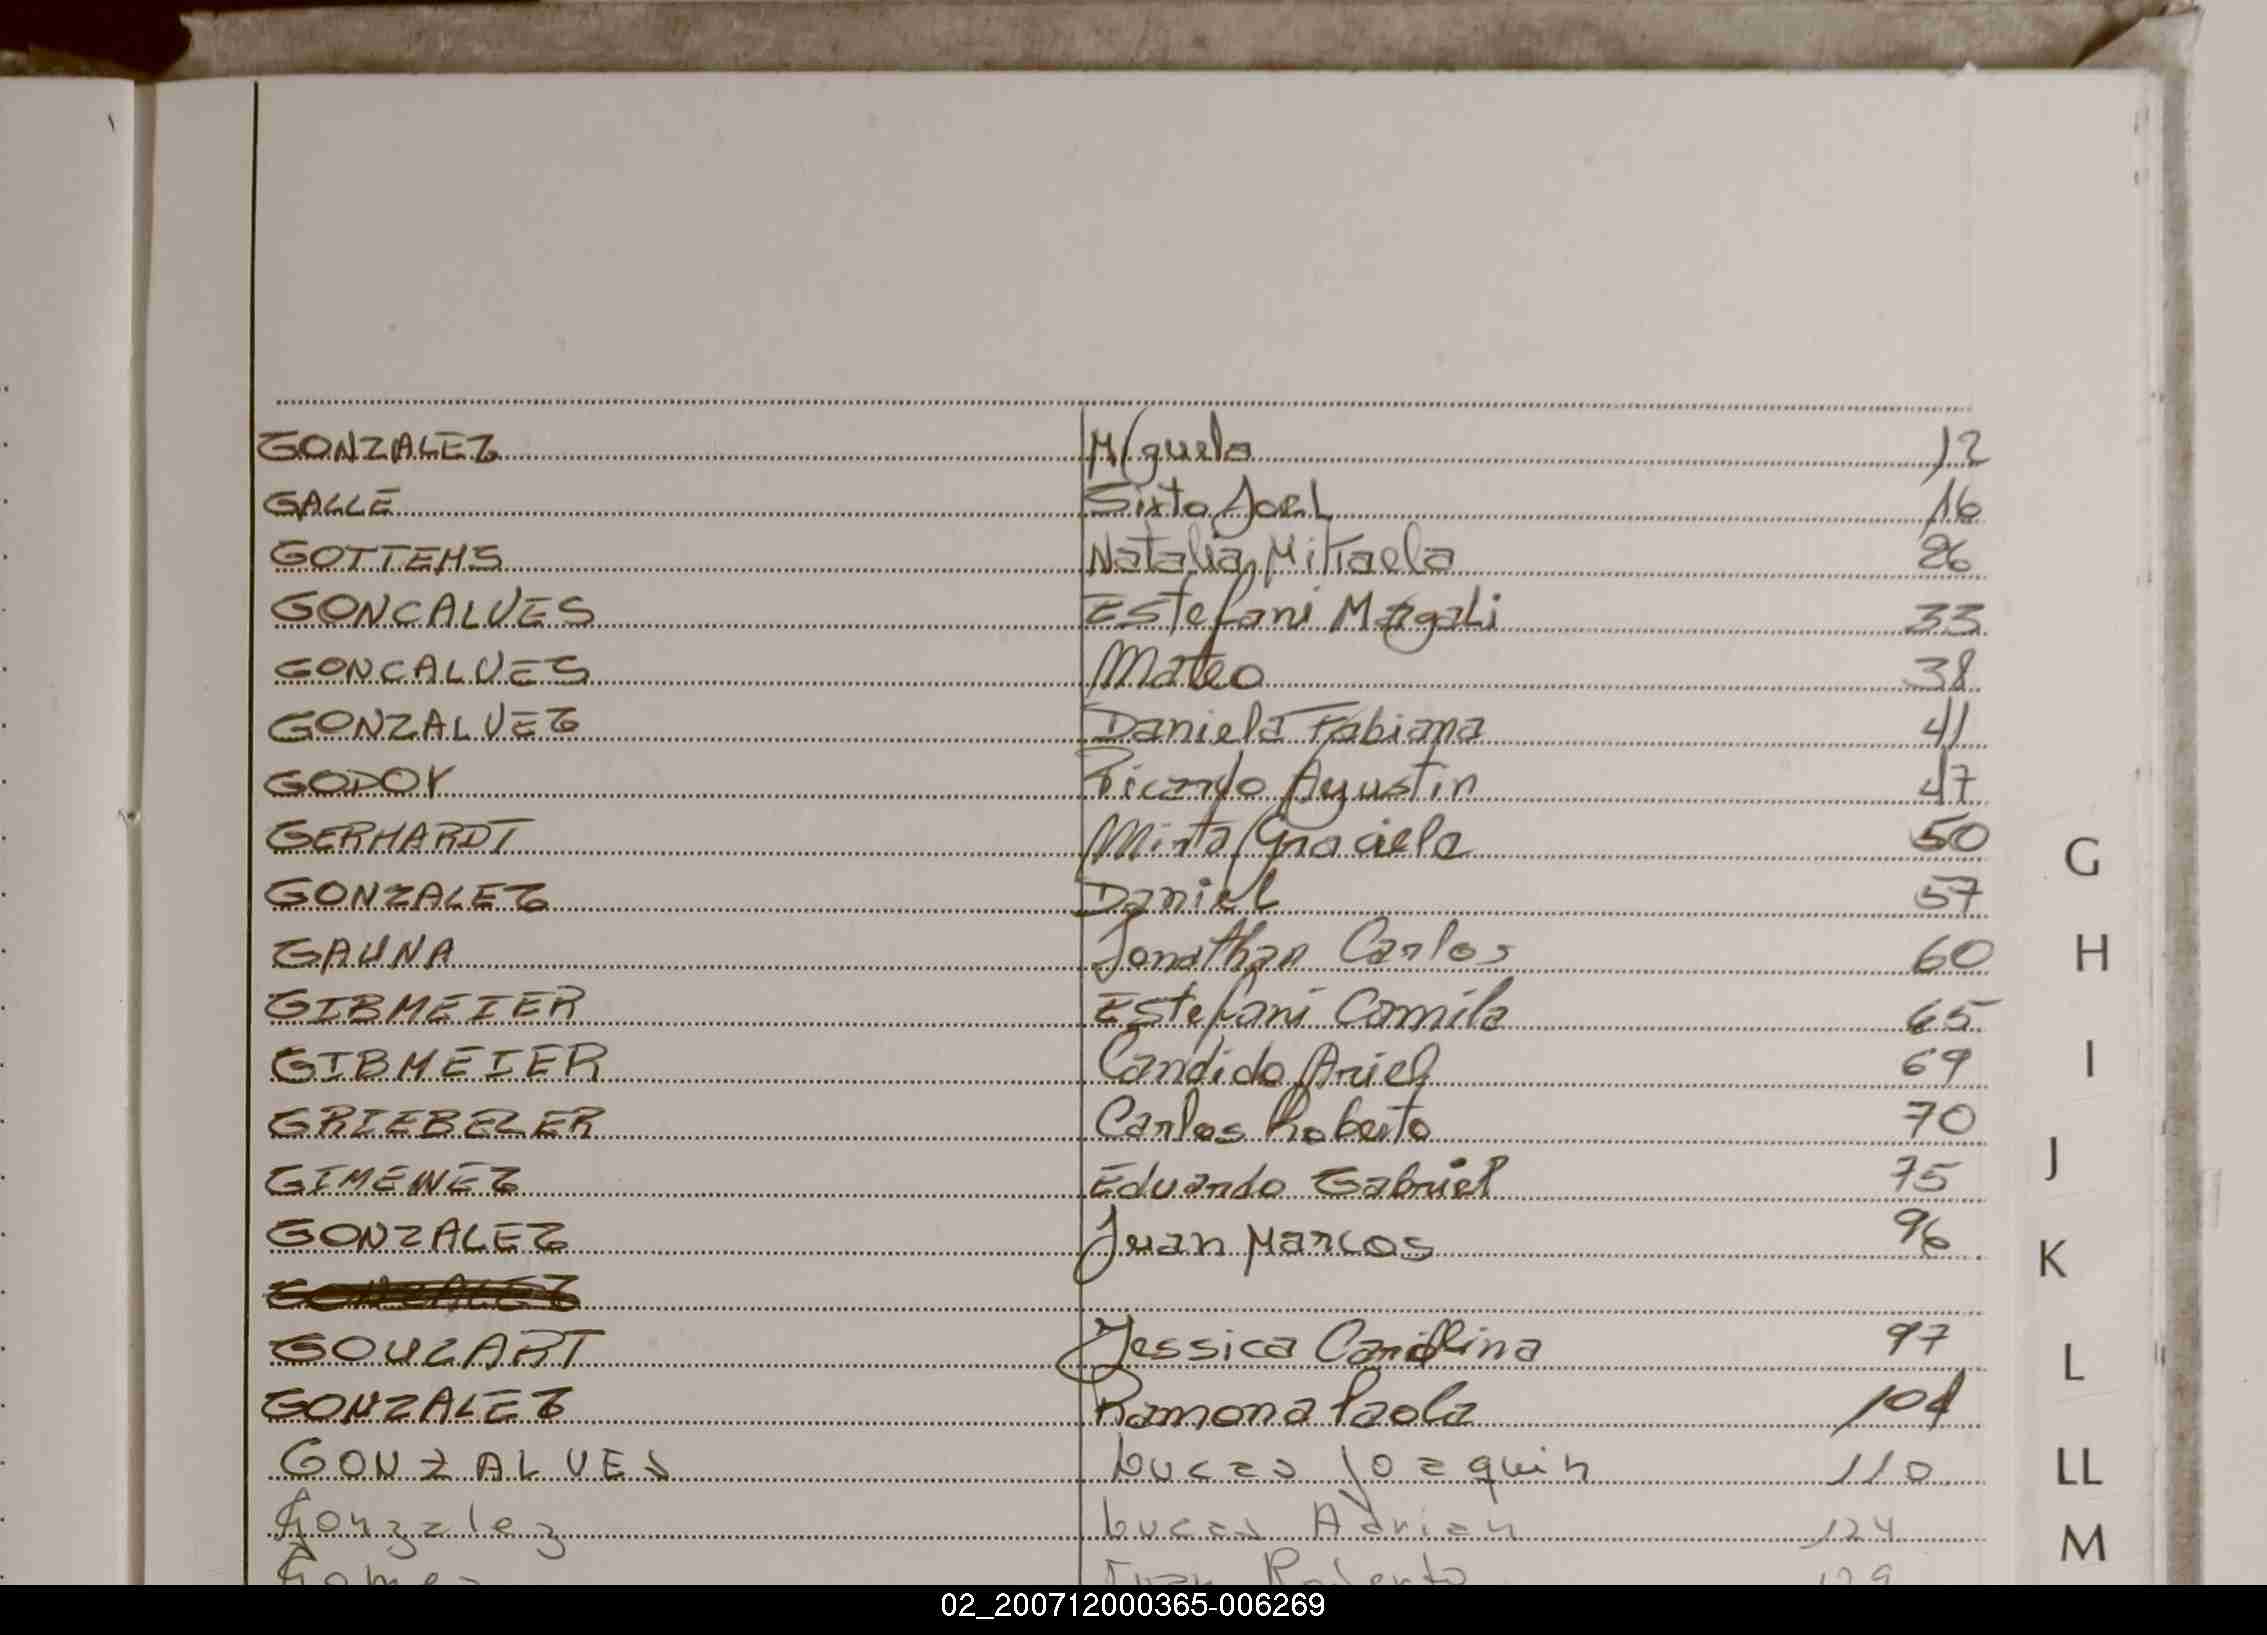 GONZALEZ Miguela 12
GALLE Sixto Joel 16
GOTTEMS Natalia Mikaela 26
GONCALVES Estefani Magali 33
GONCALVES Mateo 38
GONZALVEZ Daniela Fabiana 41
GODOY Ricardo Agustin 47
GERHARDT Mirta Graciela 50
GONZALEZ Daniel 57
GAUNA Jonathan Carlos 60
GIBMEIER Estefani Camila 65
GIBMEIER Candido Ariel 69
GRIEBELER Carlos Roberto 70
GIMENEZ Eduardo Gabriel 75
GONZALEZ Juan Marcos 96
GONZALEZ
GOULART Jessica Carolina 97
GONZALEZ Ramona Paola 104
GONZALVES Lucas Joaquin 110
Gonzalez Lucas Adrian 124
Gomez Juan Roberto 129
G
H
I
J
K
L
LL
M
02_200712000365-006269